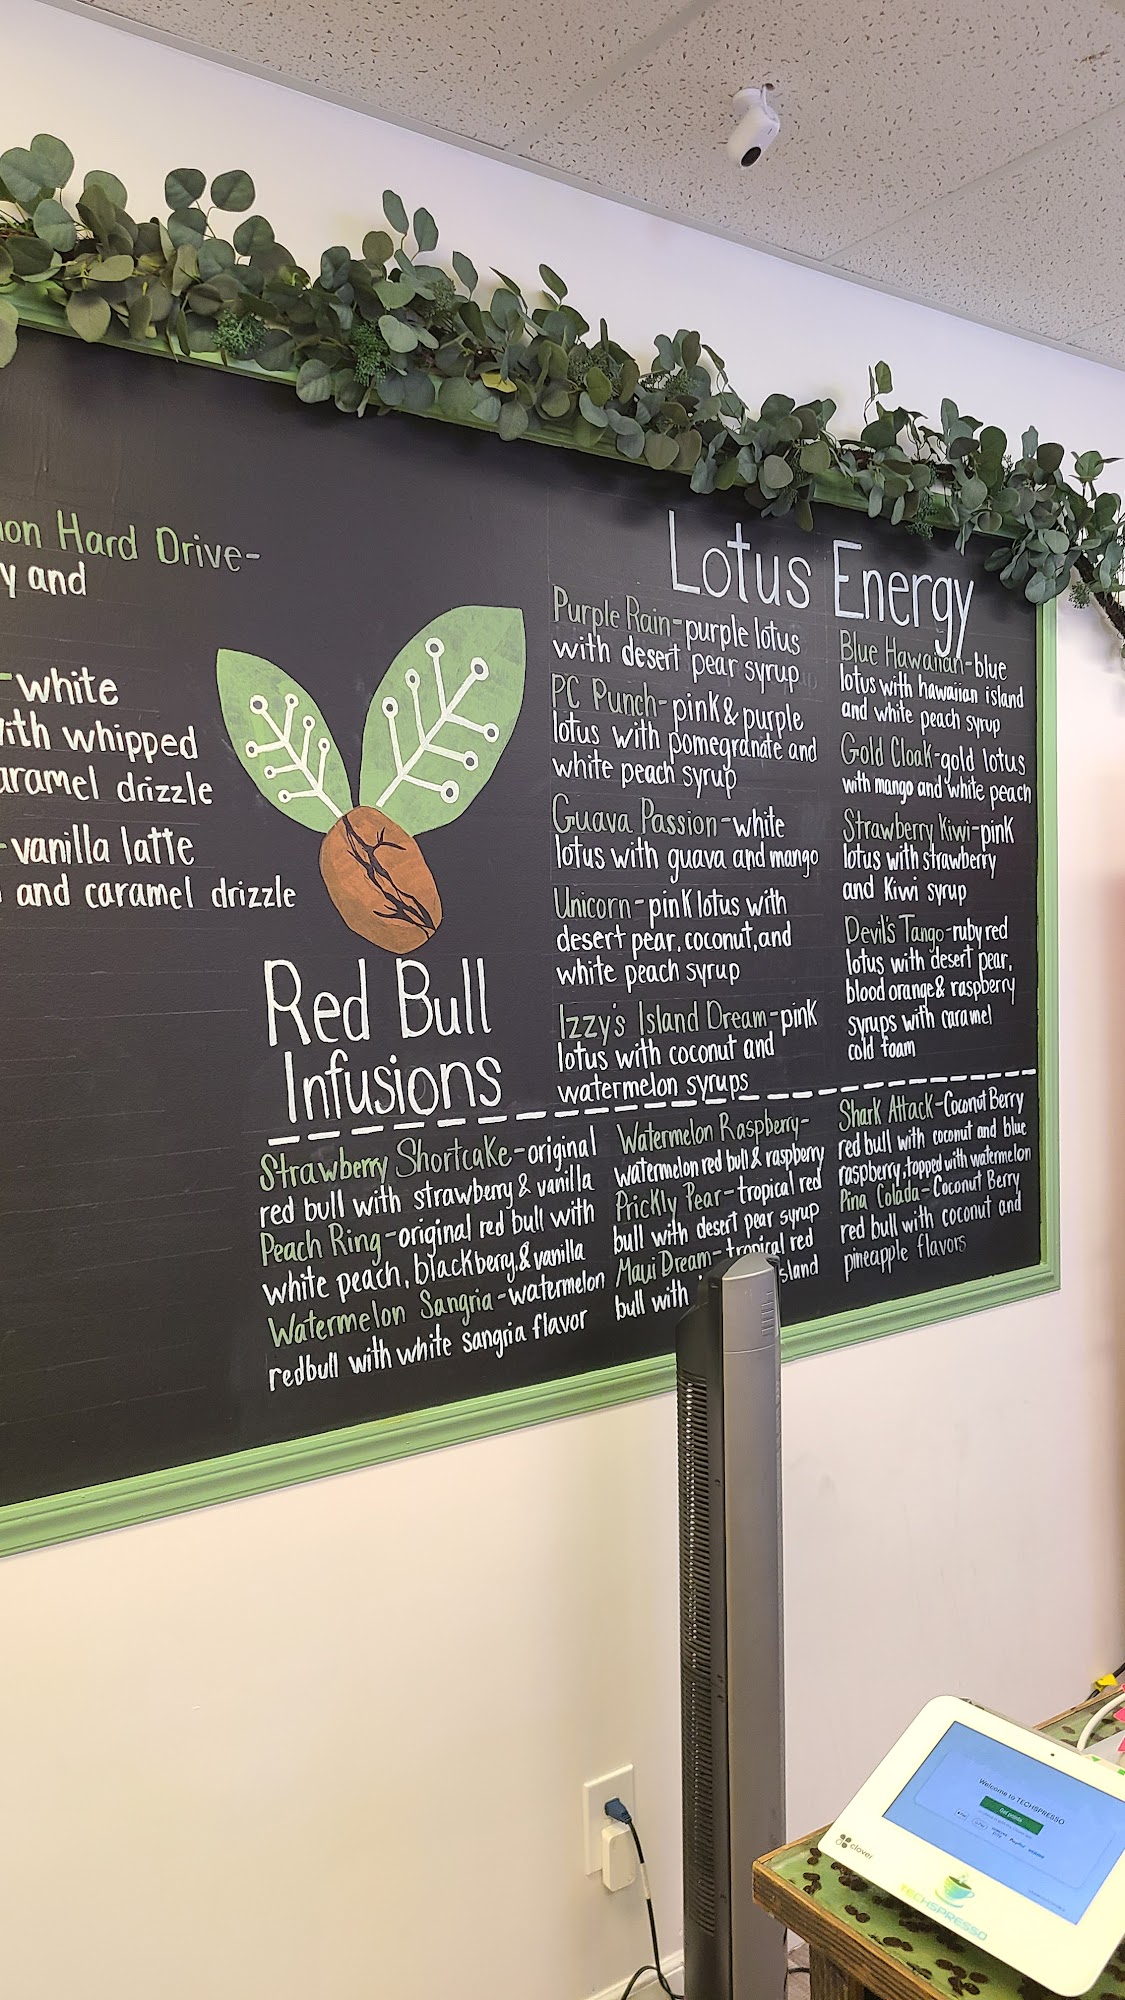 on Hard Drive-
y and
-white
with whipped
aramel drizzle
-vanilla latte
and caramel drizzle
Red Bull
Infusions
Strawberry Shortcake-original
red bull with strawberry & vanilla
Peach Ring-original red bull with
white peach, blackberry, & vanilla
Watermelon Sangria-watermelon
redbull with white sangria flavor
Watermelon Raspberry-
watermelon red bull & raspberry
Prickly Pear-tropical red
bull with desert pear syrup
Maui Dream-tropical red
bull with island
Shark Attack-Coconut Berry
red bull with coconut and blue
raspberry, topped with watermelon
Pina Colada-Coconut Berry
red bull with coconut and
pineapple flavors
Lotus Energy
Purple Rain-purple lotus
with desert pear syrup
PC Punch-pink & purple
lotus with pomegranate and
white peach syrup
Guava Passion-white
lotus with guava and mango
Unicorn-pink lotus with
desert pear, coconut, and
white peach syrup
Izzy's Island Dream-pink
lotus with coconut and
watermelon syrups
Blue Hawaiian-blue
lotus with hawaiian island
and white peach syrup
Gold Cloak-gold lotus
with mango and white peach
Strawberry Kiwi-pink
lotus with strawberry
and Kiwi syrup
Devil's Tango-ruby red
lotus with desert pear,
blood orange & raspberry
syrups with caramel
cold foam
Welcome to TECHSPRESSO
clover
TECHSPRESSO